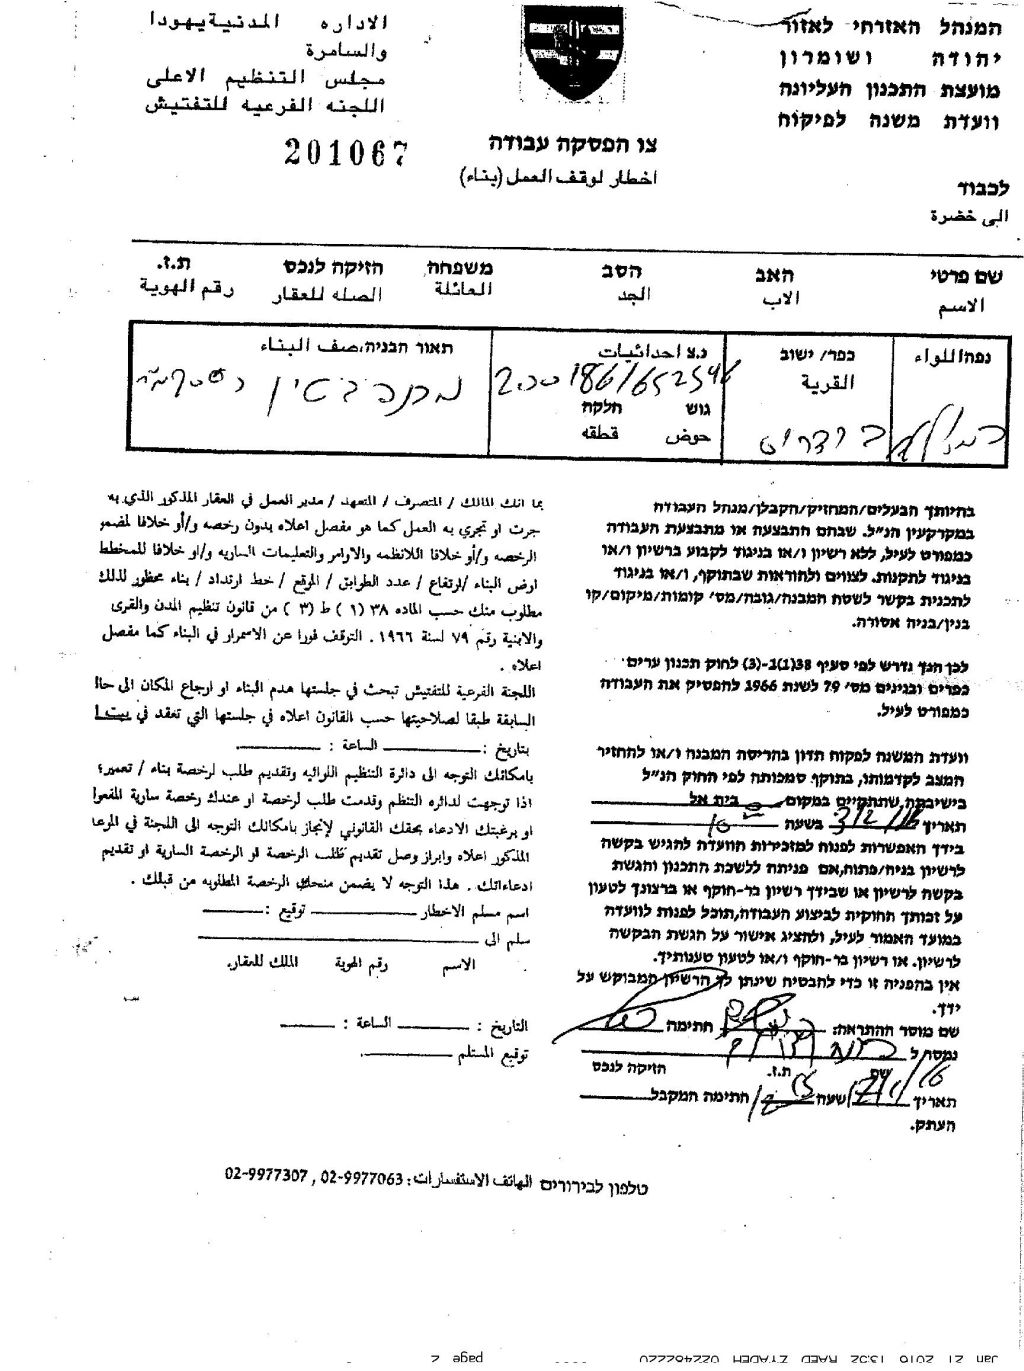 המנהל האזרחי לאזור
יהודה ושומרון
מועצת התכנון העליונה
וועדת משנה לפיקוח
الاداره المدنية يهودا
والسامرة
مجلس التنظيم الاعلى
اللجنه الفرعيه للتفتيش
201067
צו הפסקה עבודה
اخطار لوقف العمل (بناء)
לכבוד
الى حضرة
שם פרטי האב הסב משפחה הזיקה לנכס ת.ז.
الاسم الاب الجد العائلة الصله للعقار رقم الهوية
נפה اللواء
כפר/ ישוב
القرية
נ.צ احداثيات
200186/652546
גוש חלקה
حوض قطقه
תאור הבניה, صف البناء
בחיותך הבעלים/המחזיק/הקבלן/מנהל העבודה
במקרקעין הנ"ל. שבהם התבצעה או מתבצעת העבודה
כמפורט לעיל, ללא רשיון ו/או בניגוד לקבוע ברשיון ו/או
בניגוד לתקנות. לצווים ולהוראות שבתוקף, ו/או בניגוד
לתכנית בקשר לשטח המבנה/גובה/מס' קומות/מיקום/קו
בנין/בניה אסורה.
לכן הנך נדרש לפי סעיף 38(1)-ג(3) לחוק תכנון ערים
כפרים ובנינים מס' 79 לשנת 1966 להפסיק את העבודה
כמפורט לעיל.
וועדת המשנה לפקוח תדון בהריסת המבנה ו/או להחזיר
המצב לקדמותו, בתוקף סמכותה לפי החוק הנ"ל
בישיבתה, שתתקיים במקום בית אל
תאריך 3/2/16 בשעה 10
בידך האפשרות לפנות למזכירות הוועדה להגיש בקשה
לרשיון בניה/פתוח, אם פניתה ללשכת התכנון והגשת
בקשה לרשיון או שבידך רשיון בר-חוקף או ברצונך לטעון
על זכותך החוקית לביצוע העבודה, תוכל לפנות לוועדה
במועד האמור לעיל, ולהציג אישור על הגשת הבקשה
לרשיון. או רשיון בר-חוקף ו/או לטעון טענותיך.
אין בהפניה זו כדי להבטיח שינתן לך הרשיון המבוקש על
ידך.
שם מוסר ההתראה: חתימה
נמסר ל
שם ת.ז. הזיקה לנכס
תאריך שעה חתימה המקבל
העתק.
بما انك المالك / المتصرف / المتعهد / مدير العمل في العقار المذكور الذي به
جرت او تجري به العمل كما هو مفصل اعلاه بدون رخصه و/أو خلافا لمضمو
الرخصه و/أو خلافا للانظمه والاوامر والتعليمات الساريه و/او خلافا للمخطط
ارض البناء /ارتفاع / عدد الطوابق / الموقع / خط ارتداد / بناء محظور لذلك
مطلوب منك حسب الماده ٣٨ (١) ط (٣) من قانون تنظيم المدن والقرى
والابنية رقم ٧٩ لسنة ١٩٦٦. التوقف فورا عن الاسمرار في البناء كما مفصل
اعلاه .
اللجنة الفرعية للتفتيش تبحث في جلستها هدم البناء او ارجاع المكان الى حال
السابقة طبقا لصلاحيتها حسب القانون اعلاه في جلستها التي تعقد في بيت ا
بتاريخ : الساعة :
بامكانك التوجه الى دائرة التنظيم اللوائيه وتقديم طلب لرخصة بناء / تعمير؛
اذا توجهت لدائره التنظم وقدمت طلب لرخصة او عندك رخصة سارية المفعوا
او برغبتك الادعاء بحقك القانوني لإنجاز بامكانك التوجه الى اللجنة في الموعا
المذكور اعلاه وابراز وصل تقديم طلب الرخصة او الرخصة السارية او تقديم
ادعاءاتك . هذا التوجه لا يضمن منحك الرخصة المطلوبه من قبلك .
اسم مسلم الاخطار توقيع :
سلم الى
الاسم رقم الهوية الملك للعقار.
التاريخ : الساعة :
توقيع المستلم
טלפון לבירורים الهاتف الاستفسارات: 02-9977063 , 02-9977307
Jan 21 2016 13:52 RAED ZYADEH 022482220 page 2